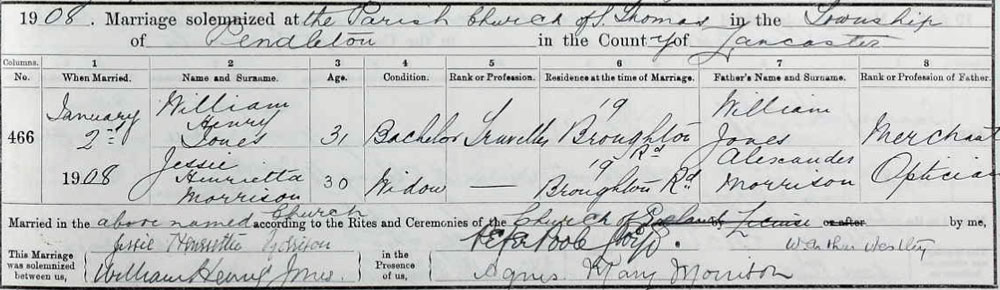 1908. Marriage solemnized at the Parish Church of S. Thomas in the Township
of Pendleton in the County of Lancaster
Columns. 1 2 3 4 5 6 7 8
No. When Married. Name and Surname. Age. Condition. Rank or Profession. Residence at the time of Marriage. Father's Name and Surname. Rank or Profession of Father.
466 January 2nd 1908 William Henry Jones 31 Bachelor Traveller 19 Broughton Rd William Jones Merchant
Jessie Henrietta Morrison 30 Widow — 19 Broughton Rd Alexander Morrison Optician
Married in the above named Church according to the Rites and Ceremonies of the Church of England by Licence or after by me,
Jessie Henrietta Morrison
This Marriage was solemnized between us, William Henry Jones. in the Presence of us, Peter Poole
Agnes Mary Morrison